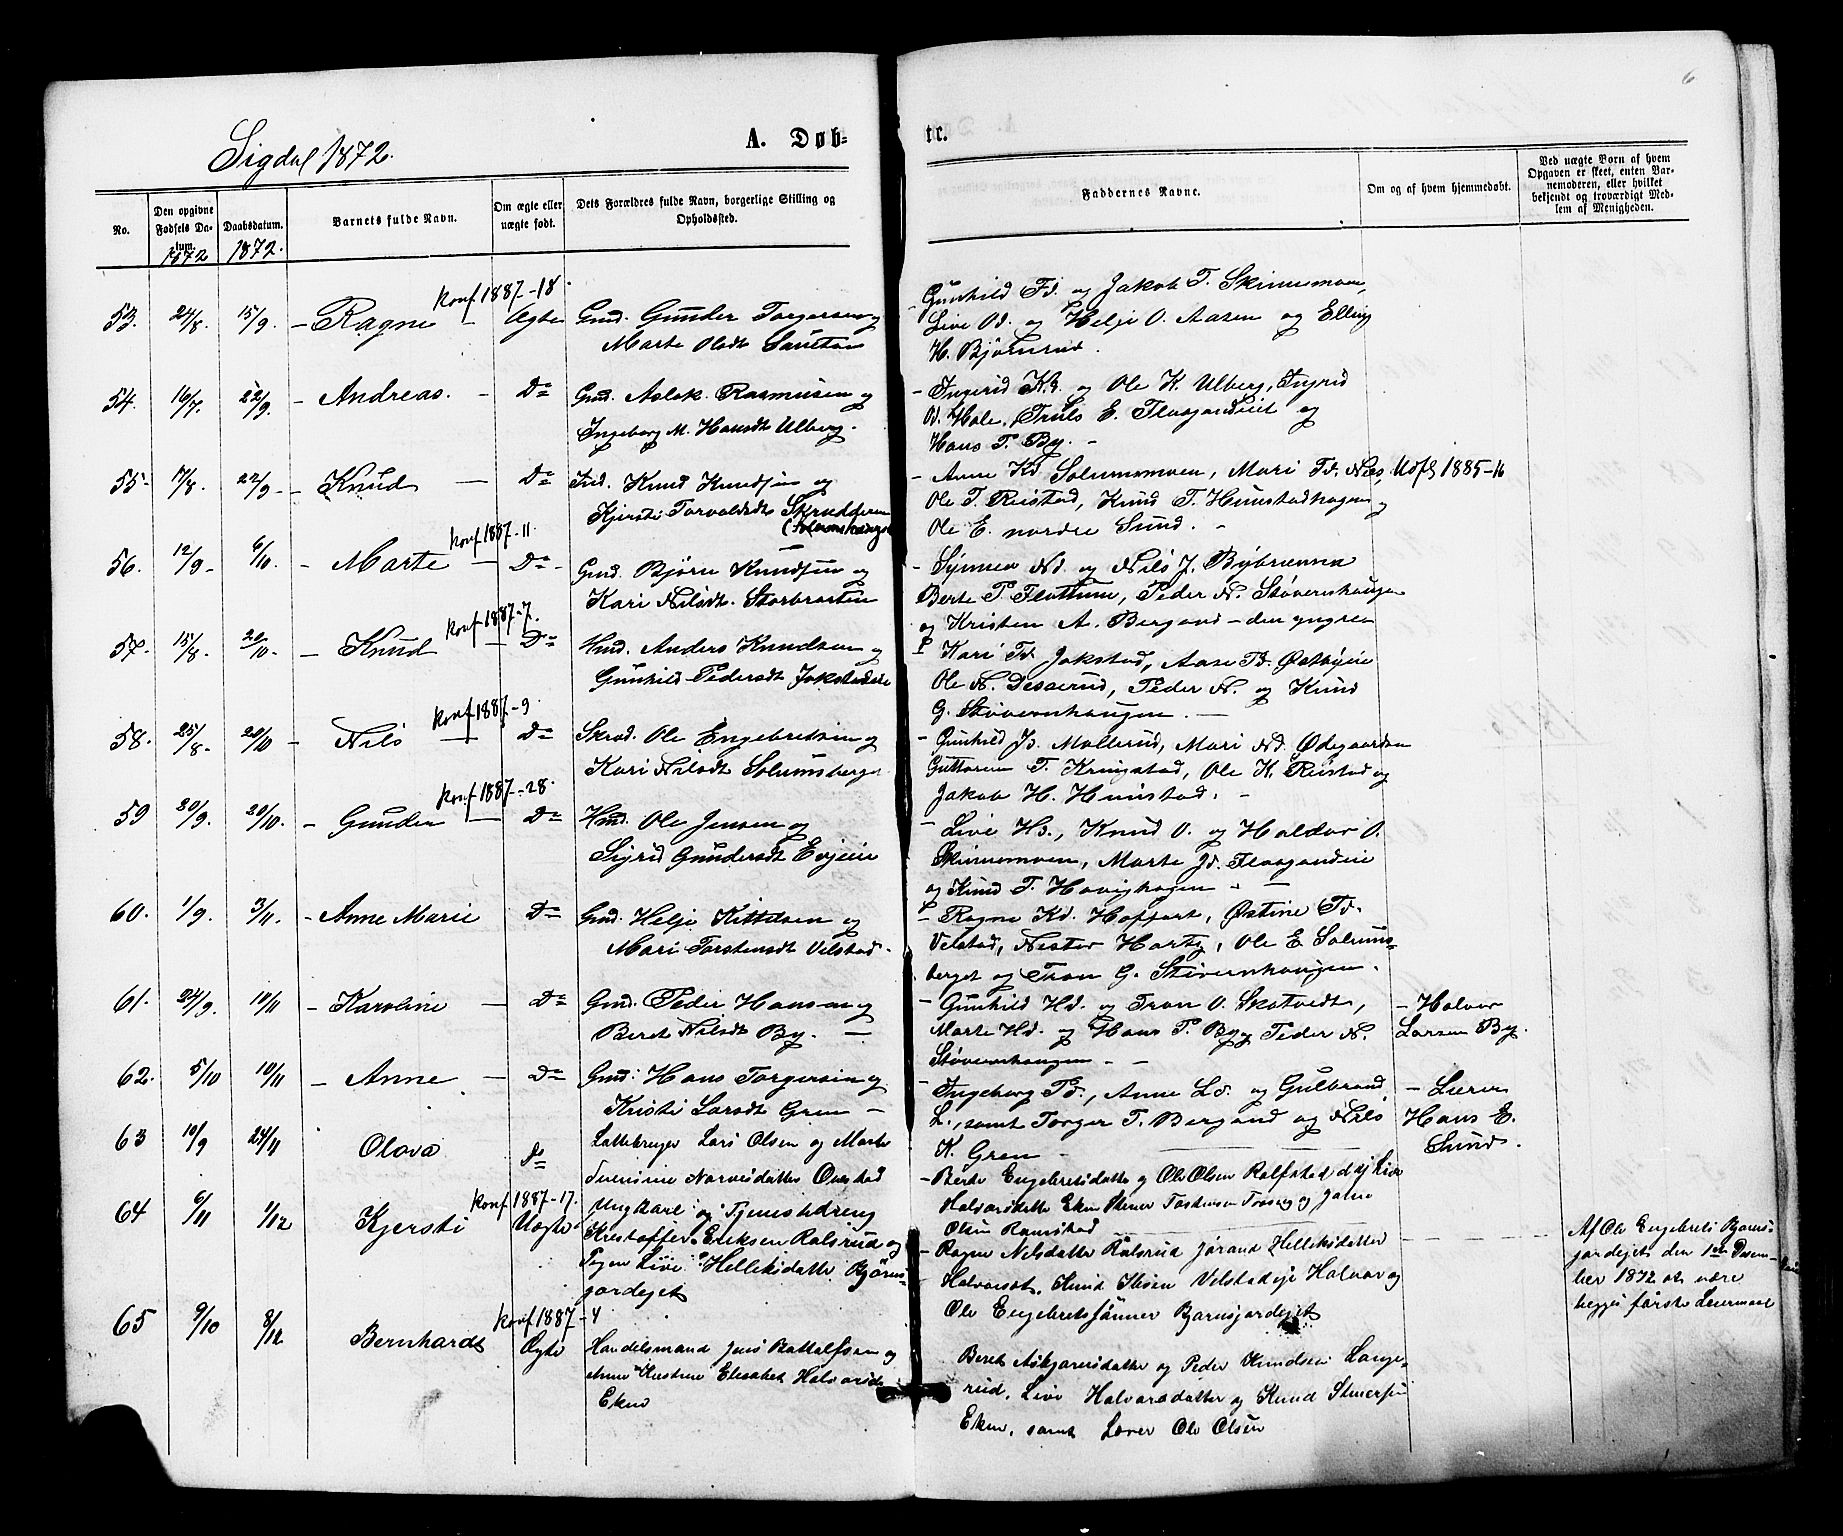 6
Sigdal 1872.
A. Døb-
te.
No.
Den opgivne Fødsels Da-tum. 1872
Daabsdatum. 1872.
Barnets fulde Navn.
Om ægte eller uægte født.
Dets Forældres fulde Navn, borgerlige Stilling og Opholdssted.
Faddernes Navne.
Om og af hvem hjemmedøbt.
Ved uægte Børn af hvem Opgaven er skeet, enten Bar-nemoderen, eller hvilket bekjendt og troværdigt Med-lem af Menigheden.
konf 1887-18.
53. 24/8. 15/9. – Ragne – Ægte Gmd. Gunder Torgersen og
Marte Olsdt
Gunhild Td. og Jakob T. Skinnesmoen,
Live Od. og Helje O. Aasen og Elling
H. Bjørnerud.
54. 16/7. 22/9. – Andreas. – Do Gmd. Aslak Rasmusen og
Ingeborg M. Hansdt Ulberg.
– Ingerid Kd. og Ole K. Ulberg, Ingrid
Od. Hole, Truls E. Flaagandeiet og
Hans P. By. –
55 17/8. 22/9. – Knud – Do Ind. Knud Knudsen og
Kjersti Torvaldsdt Skredderen
– Anne Kd Solumsmoen, Mari Td. Næs, Udfl 1885-16
Ole T. Reistad, Knud T. Hunstadhagen og
Ole E. nordre Sund. –
konf 1887-11
56. 12/9. 6/10. – Marte – Do – Gmd. Bjørn Knudsen og
Kari Nilsdt. Storbraaten
– Synnea Nd. og Nils J. Bybrænna
Berte P. Flattum, Peder N. Støvernhaugen
og Kristen A. Bergand – den yngre
konf 1887-7.
57. 15/8. 20/10. – Knud – Do Hmd. Anders Knudsen og
Gunhild Pedersdt Jokstadeie
Kari Td. Jokstad, Aase Td. Østbyeie
Ole N. Desserud, Peder N. og Knud
G. Støvernhaugen. –
konf 1887-9
58. 25/8. 20/10 – Nils – Do Ole Engebretsen og
Kari Nilsdt Solumsberget
– Gunhild Jd. Mollerud, Mari Nd. Ødegaarden
Guttorm T. Kringstad, Ole K. Reistad og
Jakob H. Hunstad. –
konf 1887-28.
59 20/9. 20/10. – Gunder – Do Hmd. Ole Jensen og
Sigrid Gundersdt Evjeeie
– Live Hd., Knud O. og Haldor O.
Skinnesmoen, Marte Jd. Flaagandeie
og Knud T. Hovighagen – –
60. 1/9. 3/11. – Anne Marie Do Gmd. Helje Kittelsen og
Mari Torstensdt Velstad.
– Ragne Kd. Hoffart, Østine Td.
Velstad, Nestor Hartz, Ole E Solums-
berget og Tron G. Støvernhaugen.
61. 24/9. 10/11 – Karoline – Do Gmd. Peder Hansen og
Beret Nilsdt By. –
– Gunhild Hd. og Tron O. Skatvedt,
Marte Hd. og Hans P. By og Peder N.
Støvernhaugen – –
– Halvor
Larsen By.
62. 5/10 10/11 – Anne – Do Gmd. Hans Torgersen og
Kristi Larsdt Gren –
– Ingeborg Td., Anne Ld. og Gulbrand
L., samt Torger T. Bergand og Nils
K. Gren –
– Lærer
Hans E.
Sund.
63 10/9 24/11 Olava Do Lars Olsen og Marte
– Berte Engebretsdatter og Ole Olsen Ralfstad Live
Halvorsdatter Eken
Olsen Ramstad
konf 1887-17.
64 6/11 1/12 Kjersti Uægte Ungkarl og Tjenestedreng
Kristoffer Eriksen Ralsrud og
Pigen Live Helleksdatter Bjørns-
jordejet
– Ragne Nilsdatter Ralsrud Jørand Helleksdatter
Knud Velstadeje Halvor og
Ole Engebretsønner Bjørnsjordejet
Af Ole Engebrets Bjørns-
jordejet den 1ste Decem-
ber 1872 at være
begges første Leiermaal
konf 1887-4
65 9/10 8/12 Bernhardt Ægte Handelsmand Jens og
Anne Kirstine Elisabet Halvorsdt
Eken
Beret Askjærsdatter og Peder Knudsen Lange-
rud, Live Halvorsdatter og Knud
Eken, samt Lærer Ole Olsen